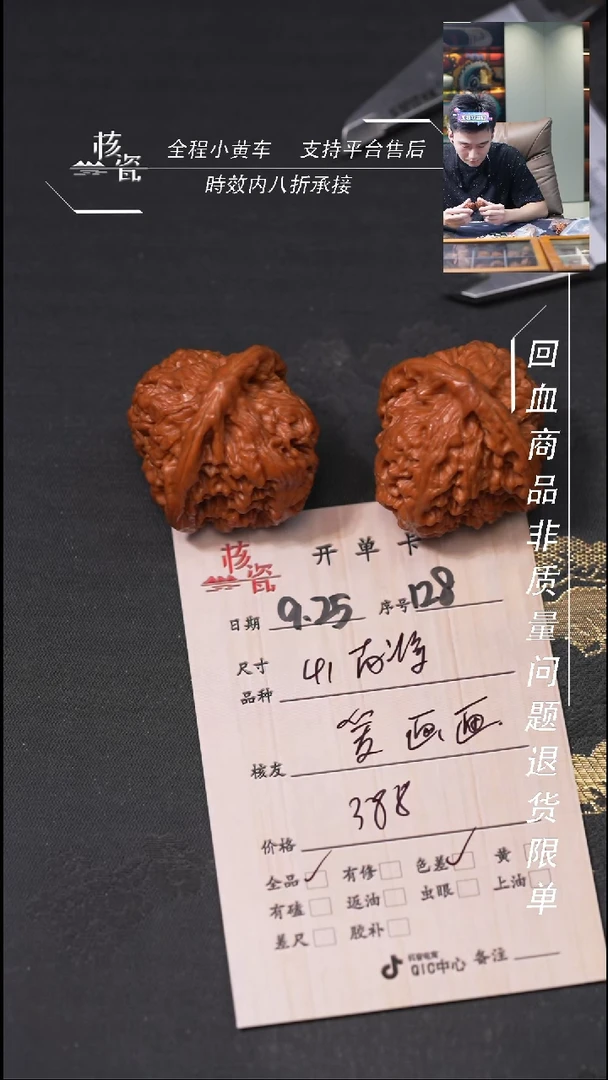 核瓷
全程小黄车 支持平台售后
時效内八折承接
回血商品非质量问题退货限单
核瓷 开单卡
日期 9.25 序号 128
尺寸 41
品种
画画
核友
388
价格
全品 有修 色差 黄
有磕 返油 虫眼 上油
差尺 胶补
抖音电商
QIC中心 备注